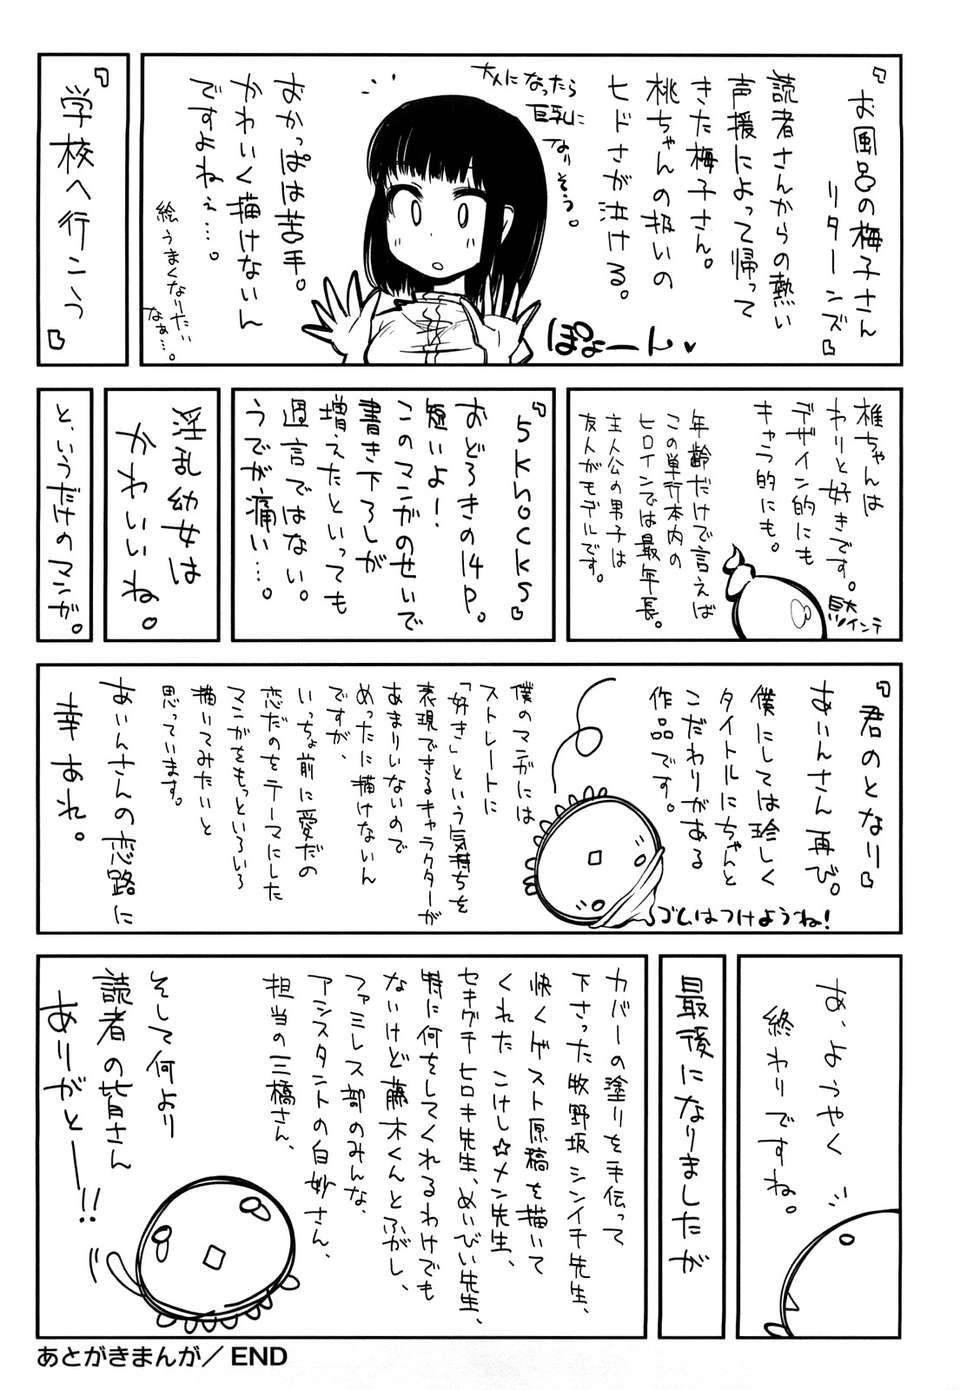 『お風呂の梅子さん
リターンズ』
読者さんからの熱い
声援によって帰って
きた梅子さん。
桃ちゃんの扱いの
ヒドさが泣ける。
ぽよーん♥
おかっぱは苦手。
かわいく描けないん
ですよねぇ…。
絵うまくなりたい
なぁ…。
『学校へ行こう』
椎ちゃんは
わりと好きです。
デザイン的にも
キャラ的にも。
年齢だけで言えば
この単行本内の
ヒロインでは最年長。
主人公の男子は
友人がモデルです。
『5knocks』
おどろきの14P。
短いよ!
このマンガのせいで
書き下ろしが
増えたといっても
過言ではない。
うでが痛い…。
と、いうだけのマンガ。
『君のとなり』
あいんさん再び。
僕にしては珍しく
タイトルにちゃんと
こだわりがある
作品です。
ゴムはつけようね!
僕のマンガには
ストレートに
「好き」という気持ちを
表現できるキャラクターが
あまりいないので
めったに描けないん
ですが、
いっちょ前に愛だの
恋だのをテーマにした
マンガをもっといろいろ
描いてみたいと
思っています。
あいんさんの恋路に
幸あれ。
あ、ようやく
終わりですね。
最後になりましたが
カバーの塗りを手伝って
下さった牧野坂シンイチ先生、
快くゲスト原稿を描いて
くれたこけし☆メン先生、
セキグチヒロキ先生、めいびい先生、
特に何をしてくれるわけでも
ないけど藤木くんとふがし、
ファミレス部のみんな、
アシスタントの白妙さん、
担当の三橋さん、
そして何より
読者の皆さん
ありがとーー!!
あとがきまんが/END